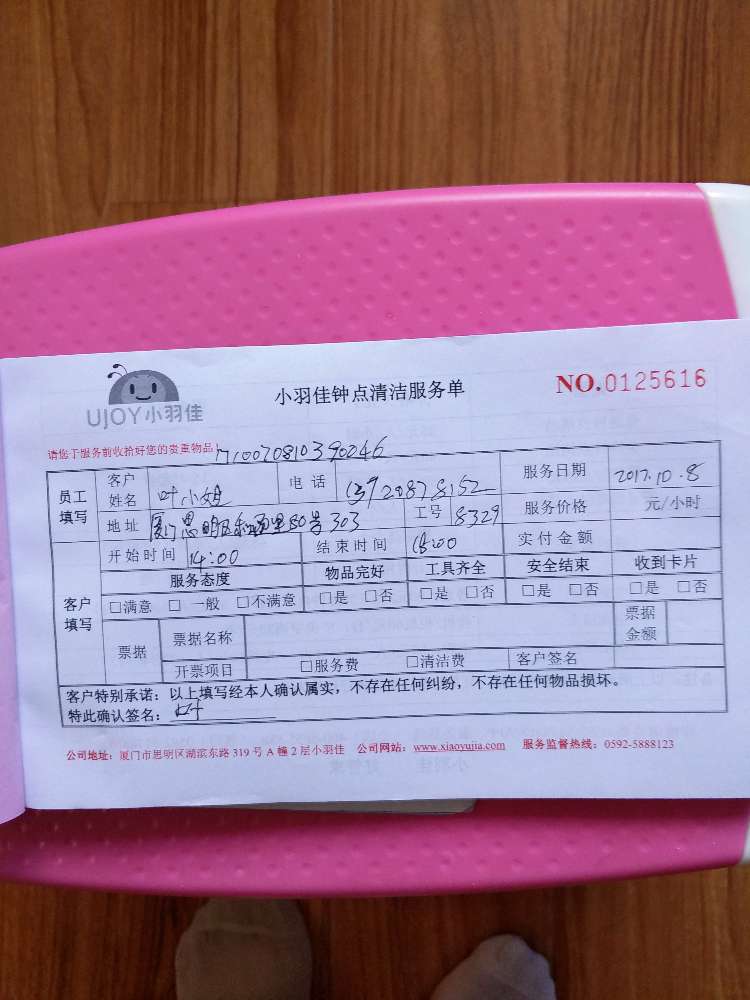 UJOY小羽佳
小羽佳钟点清洁服务单
NO.0125616
请您于服务前收拾好您的贵重物品！
员工填写 客户姓名 叶小姐 电话 服务日期 2017.10.8
地址 厦门思明区 80号303 工号 8329 服务价格 元/小时
客户填写 开始时间 14:00 结束时间 18:00 实付金额
服务态度 物品完好 工具齐全 安全结束 收到卡片
□满意 □一般 □不满意 □是 □否 □是 □否 □是 □否 □是 □否
票据 票据名称 票据金额
开票项目 □服务费 □清洁费 客户签名
客户特别承诺：以上填写经本人确认属实，不存在任何纠纷，不存在任何物品损坏。
特此确认签名：叶
公司地址：厦门市思明区湖滨东路 319 号 A 幢 2 层小羽佳 公司网站：www.xiaoyujia.com 服务监督热线：0592-5888123